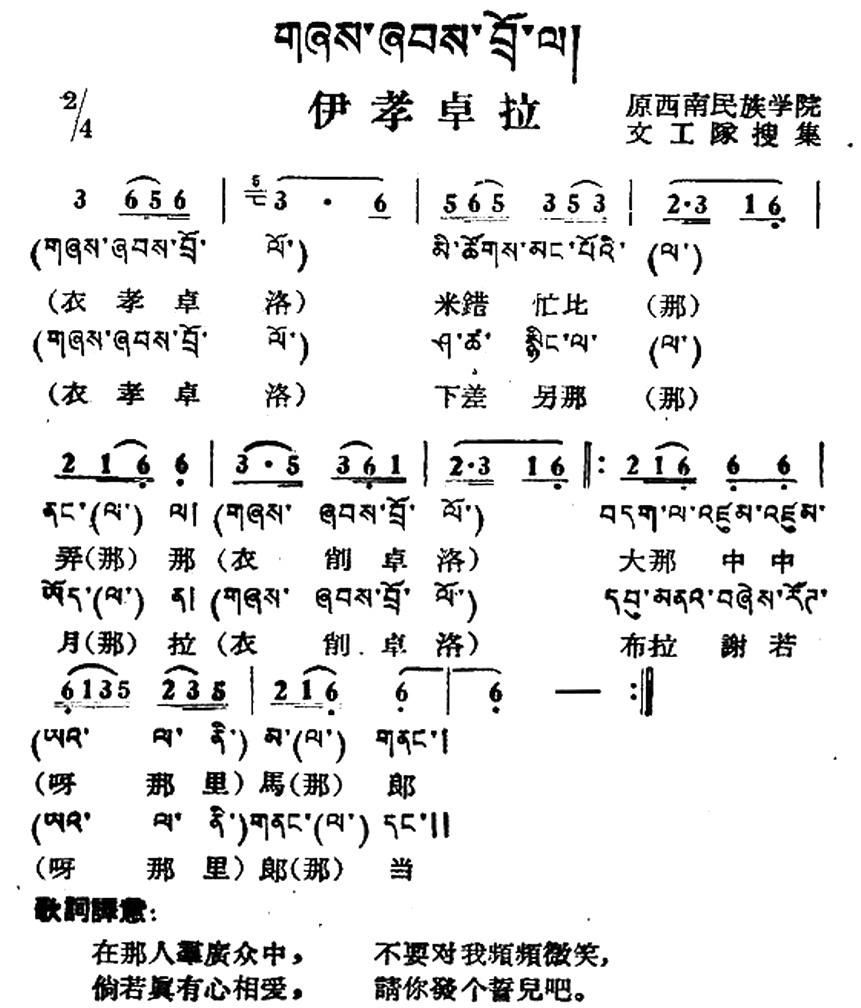 གཞས་ཞབས་བྲོ་ལ།
2/4
伊孝卓拉
原西南民族学院
文工隊搜集
3 6 5 6 | 5 七 3 · 6 | 5 6 5 3 5 3 | 2·3 1 6 |
(གཞས་ཞབས་བྲོ་ ལོ་) མི་ཚོགས་མང་པོའི་ (ལ་)
(衣孝卓 洛) 米錯 忙比 (那)
(གཞས་ཞབས་བྲོ་ ལོ་) ཤ་ཚ་ སྙིང་ལ་ (ལ་)
(衣孝卓 洛) 下差 另那 (那)
2 1 6 6 | 3·5 3 6 1 | 2·3 1 6 :‖: 2 1 6 6 6 |
ནང་(ལ་) ལ། (གཞས་ ཞབས་བྲོ་ ལོ་) བདག་ལ་འཛུམ་འཛུམ་
弄(那) 那 (衣 削卓洛) 大那 中中
ཡོད་(ལ་) ན། (གཞས་ ཞབས་བྲོ་ ལོ་) དབུ་མནའ་བཞེས་རོཊ་
月(那) 拉 (衣 削卓洛) 布拉 謝若
6135 235 | 216 6 | 6 — :‖
(ཨའ་ ལ་ ནི་) མ་(ལ་) གནང་།
(呀 那 里) 馬(那) 郎
(ཨའ་ ལ་ ནི་)གནང་(ལ་) དང་།།
(呀 那 里) 郎(那) 当
歌詞譯意:
在那人羣廣众中, 不要对我頻頻微笑,
倘若眞有心相爱, 請你發个誓兒吧。